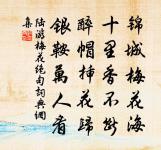 錦城梅花海
十里香不斷
醉帽插花歸
銀鞍萬人看
陸游梅花绝句詞典網
集